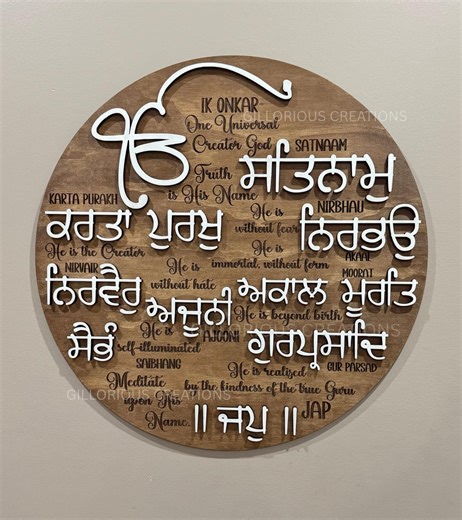 ੴ
IK ONKAR
GILLORIOUS CREATIONS
One Universal
Creator God
SATNAAM
Truth
is His Name
ਸਤਿਨਾਮੁ
KARTA PURAKH
ਕਰਤਾ ਪੁਰਖੁ
He is the Creator
He is
without fear
NIRBHAU
ਨਿਰਭਉ
NIRVAIR
ਨਿਰਵੈਰੁ
He is
without hate
immortal, without form
AKAAL
MOORAT
ਅਕਾਲ ਮੂਰਤਿ
ਅਜੂਨੀ
He is beyond birth
AJOONI
ਸੈਭੰ
He is
self-illuminated
SAIBHANG
ਗੁਰਪ੍ਰਸਾਦਿ
GUR PARSAD
He is realised
by the kindness of the true Guru
Meditate
upon His
Name.
GILLORIOUS CREATIONS
॥ ਜਪੁ ॥
JAP